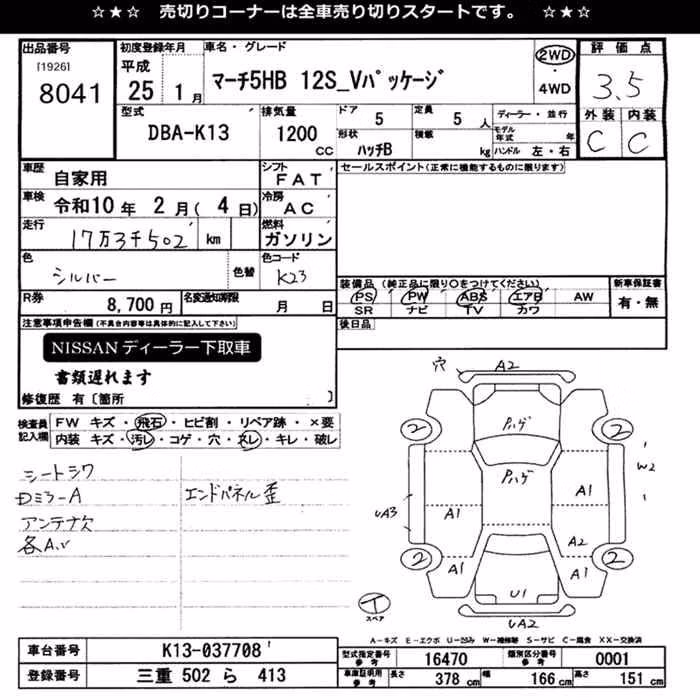 ☆★☆ 売切りコーナーは全車売り切りスタートです。 ☆★☆
出品番号 初度登録年月 車名・グレード 評価点
[1926] 8041
平成 25 1月
マーチ5HB 12S_Vパッケージ
2WD・4WD
3.5
型式 DBA-K13
排気量 1200 CC
ドア 5 定員 5 人
形状 ハッチB 積載 kg
ディーラー・並行
モデル年式 年
ハンドル 左・右
外装 内装
C C
車歴 自家用
シフト FAT
セールスポイント(正常に機能するものに限ります)
車検 令和10年 2月(4日)
冷房 AC
走行 17万3千502 km
燃料 ガソリン
色 シルバー 色替
色コード K23
R券 8,700円 名変通知期限 月 日
装備品(純正品に限り○をつけてください) 新車保証書
PS PW ABS エアB AW 有・無
SR ナビ TV カワ
後日品
注意事項申告欄(不具合内容等は具体的に記入して下さい)
NISSANディーラー下取車
書類遅れます
修復歴 有〔箇所 〕
検査員記入欄
FW キズ・飛石・ヒビ割・リペア跡・×要
内装 キズ・汚レ・コゲ・穴・スレ・キレ・破レ
シートシワ
ロミラーA エンドパネル歪
アンテナ欠
各A.U
穴 A2
パハゲ
パハゲ
2 2
W2
UA3
A1 A1
A2
A1 A1
2 2
U1
UA2
スペア
A-キズ E-エクボ U-凹み W-補修跡 S-サビ C-腐食 XX-交換済
車台番号 K13-037708
型式指定番号 参考 16470 類別区分番号 参考 0001
登録番号 三重 502 ら 413
車庫証明用 参考 長さ 378 cm 幅 166 cm 高さ 151 cm